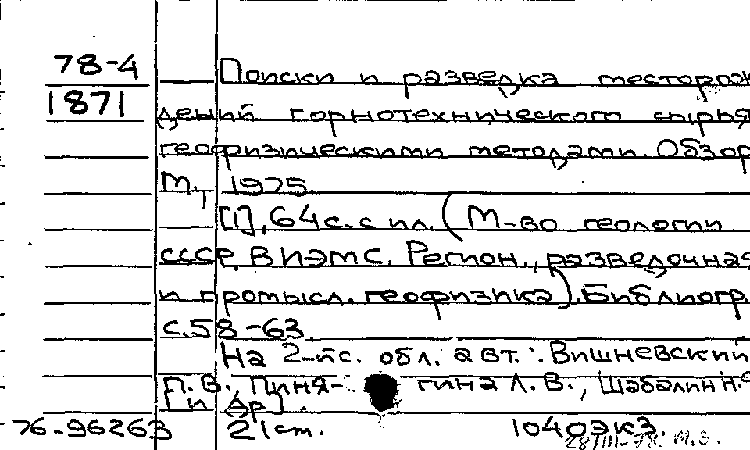 78-4 Поиски и разведка месторож
1871 дений горнотехнического сырья
геофизическими методами. Обзор
М., 1975
[1], 64 с. с ил. (М-во геологии
СССР. ВИЭМС. Регион., разведочная
и промысл. геофизика). Библиогр
с. 58-63
На 2-й с. обл. авт.: Вишневский
П. В., Пиня- гина Л. В., Шабалин Н.
[и др]
76-96263 2 1 ст. 1040 экз.
28/III-78. М.З.